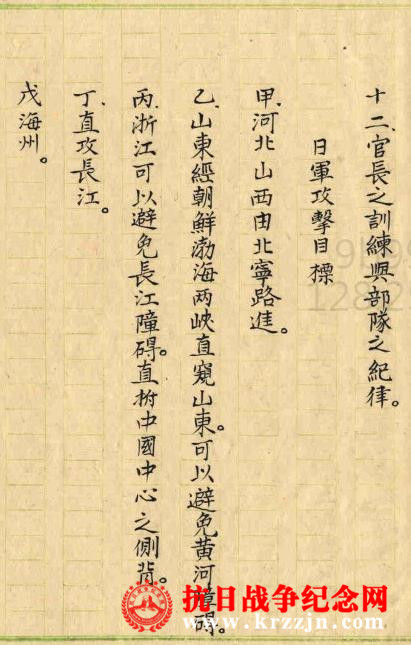 十二、官長之訓練與部隊之紀律。
日軍攻擊目標
甲、河北山西由北寧路進。
乙、山東經朝鮮渤海两峽直窺山東。可以避免黄河障碍。
丙、浙江可以避免長江障碍。直拊中國中心之側背。
丁、直攻長江。
戊海州。
抗日战争纪念网
www.krzzjn.com